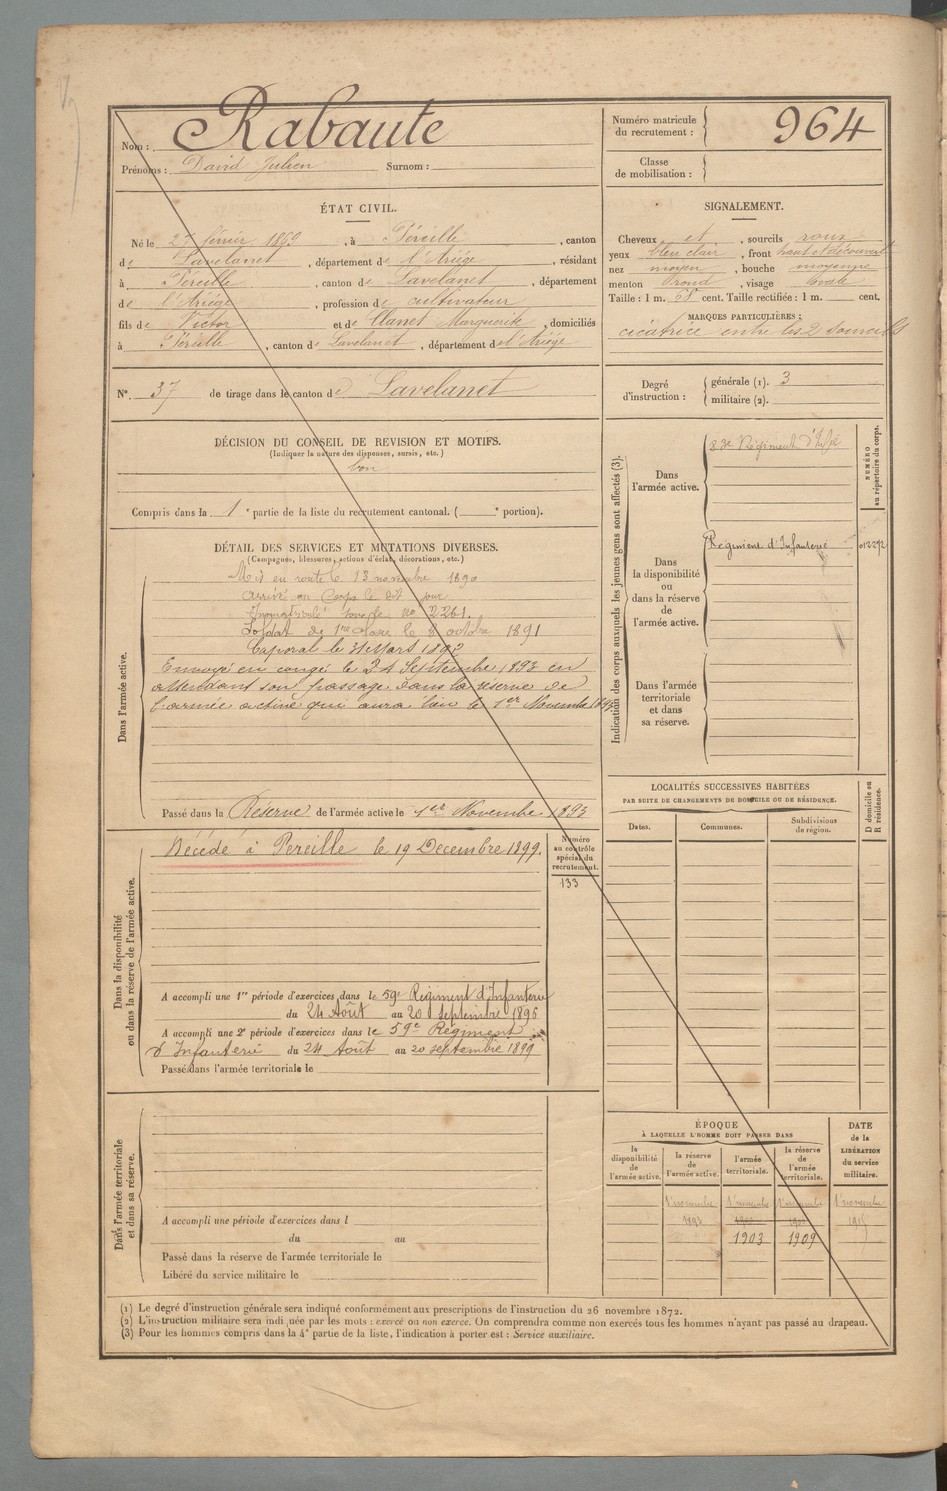 Nom : Rabaute
Prénoms : David Julien Surnom :
Numéro matricule du recrutement : 964
Classe de mobilisation :
ÉTAT CIVIL.
Né le 27 février 1869, à Péreille, canton
de Lavelanet, département de l'Ariège, résidant
à Péreille, canton de Lavelanet, département
de l'Ariège, profession de cultivateur
fils de Victor et de Clanet Marguerite, domiciliés
à Péreille, canton de Lavelanet, département de l'Ariège
SIGNALEMENT.
Cheveux et, sourcils roux
yeux bleu clair, front haut et découvert
nez moyen, bouche moyenne
menton rond, visage ovale
Taille : 1 m. cent. Taille rectifiée : 1 m. cent.
MARQUES PARTICULIÈRES :
cicatrice entre les 2 sourcils
N°. 37 de tirage dans le canton de Lavelanet
Degré d'instruction : générale (1). 3
militaire (2).
DÉCISION DU CONSEIL DE REVISION ET MOTIFS.
(Indiquer la nature des dispenses, sursis, etc.)
bon
Compris dans la 1e partie de la liste du recrutement cantonal. ( e portion).
DÉTAIL DES SERVICES ET MUTATIONS DIVERSES.
(Campagnes, blessures, actions d'éclat, décorations, etc.)
Dans l'armée active.
Mis en route le 13 novembre 1890
arrivé au Corps le dit jour
Immatriculé sous le no 2261.
Soldat de 1re classe le 8 octobre 1891
Caporal le 31 Mars 1892
Envoyé en congé le 24 Septembre 1893 en
attendant son passage dans la réserve de
l'armée active qui aura lieu le 1er Novembre 1893.
Passé dans la Réserve de l'armée active le 1er Novembre 1893
Indication des corps auxquels les jeunes gens sont affectés (3).
NUMÉRO au répertoire du corps.
Dans l'armée active.
83e Régiment d'Infie
Dans la disponibilité ou dans la réserve de l'armée active.
Régiment d'Infanterie
Dans l'armée territoriale et dans sa réserve.
Dans la disponibilité ou dans la réserve de l'armée active.
Décédé à Péreille le 19 Décembre 1899.
Numéro au contrôle spécial du recrutement.
133
A accompli une 1re période d'exercices dans le 59e Régiment d'Infanterie
du 24 Août au 20 Septembre 1896
A accompli une 2e période d'exercices dans le 59e Régiment
d'Infanterie du 24 Août au 20 septembre 1899
Passé dans l'armée territoriale le
LOCALITÉS SUCCESSIVES HABITÉES
PAR SUITE DE CHANGEMENTS DE DOMICILE OU DE RÉSIDENCE.
D domicile ou R résidence.
Dates. Communes. Subdivisions de région.
Dans l'armée territoriale et dans sa réserve.
A accompli une période d'exercices dans l
du au
Passé dans la réserve de l'armée territoriale le
Libéré du service militaire le
ÉPOQUE
À LAQUELLE L'HOMME DOIT PASSER DANS
la disponibilité de l'armée active.
la réserve de l'armée active.
l'armée territoriale.
la réserve de l'armée territoriale.
DATE de la LIBÉRATION du service militaire.
1er novembre 1er novembre 1er novembre 1er novembre
1893
1903 1909
(1) Le degré d'instruction générale sera indiqué conformément aux prescriptions de l'instruction du 26 novembre 1872.
(2) L'instruction militaire sera indiquée par les mots : exercé ou non exercé. On comprendra comme non exercés tous les hommes n'ayant pas passé au drapeau.
(3) Pour les hommes compris dans la 4e partie de la liste, l'indication à porter est : Service auxiliaire.